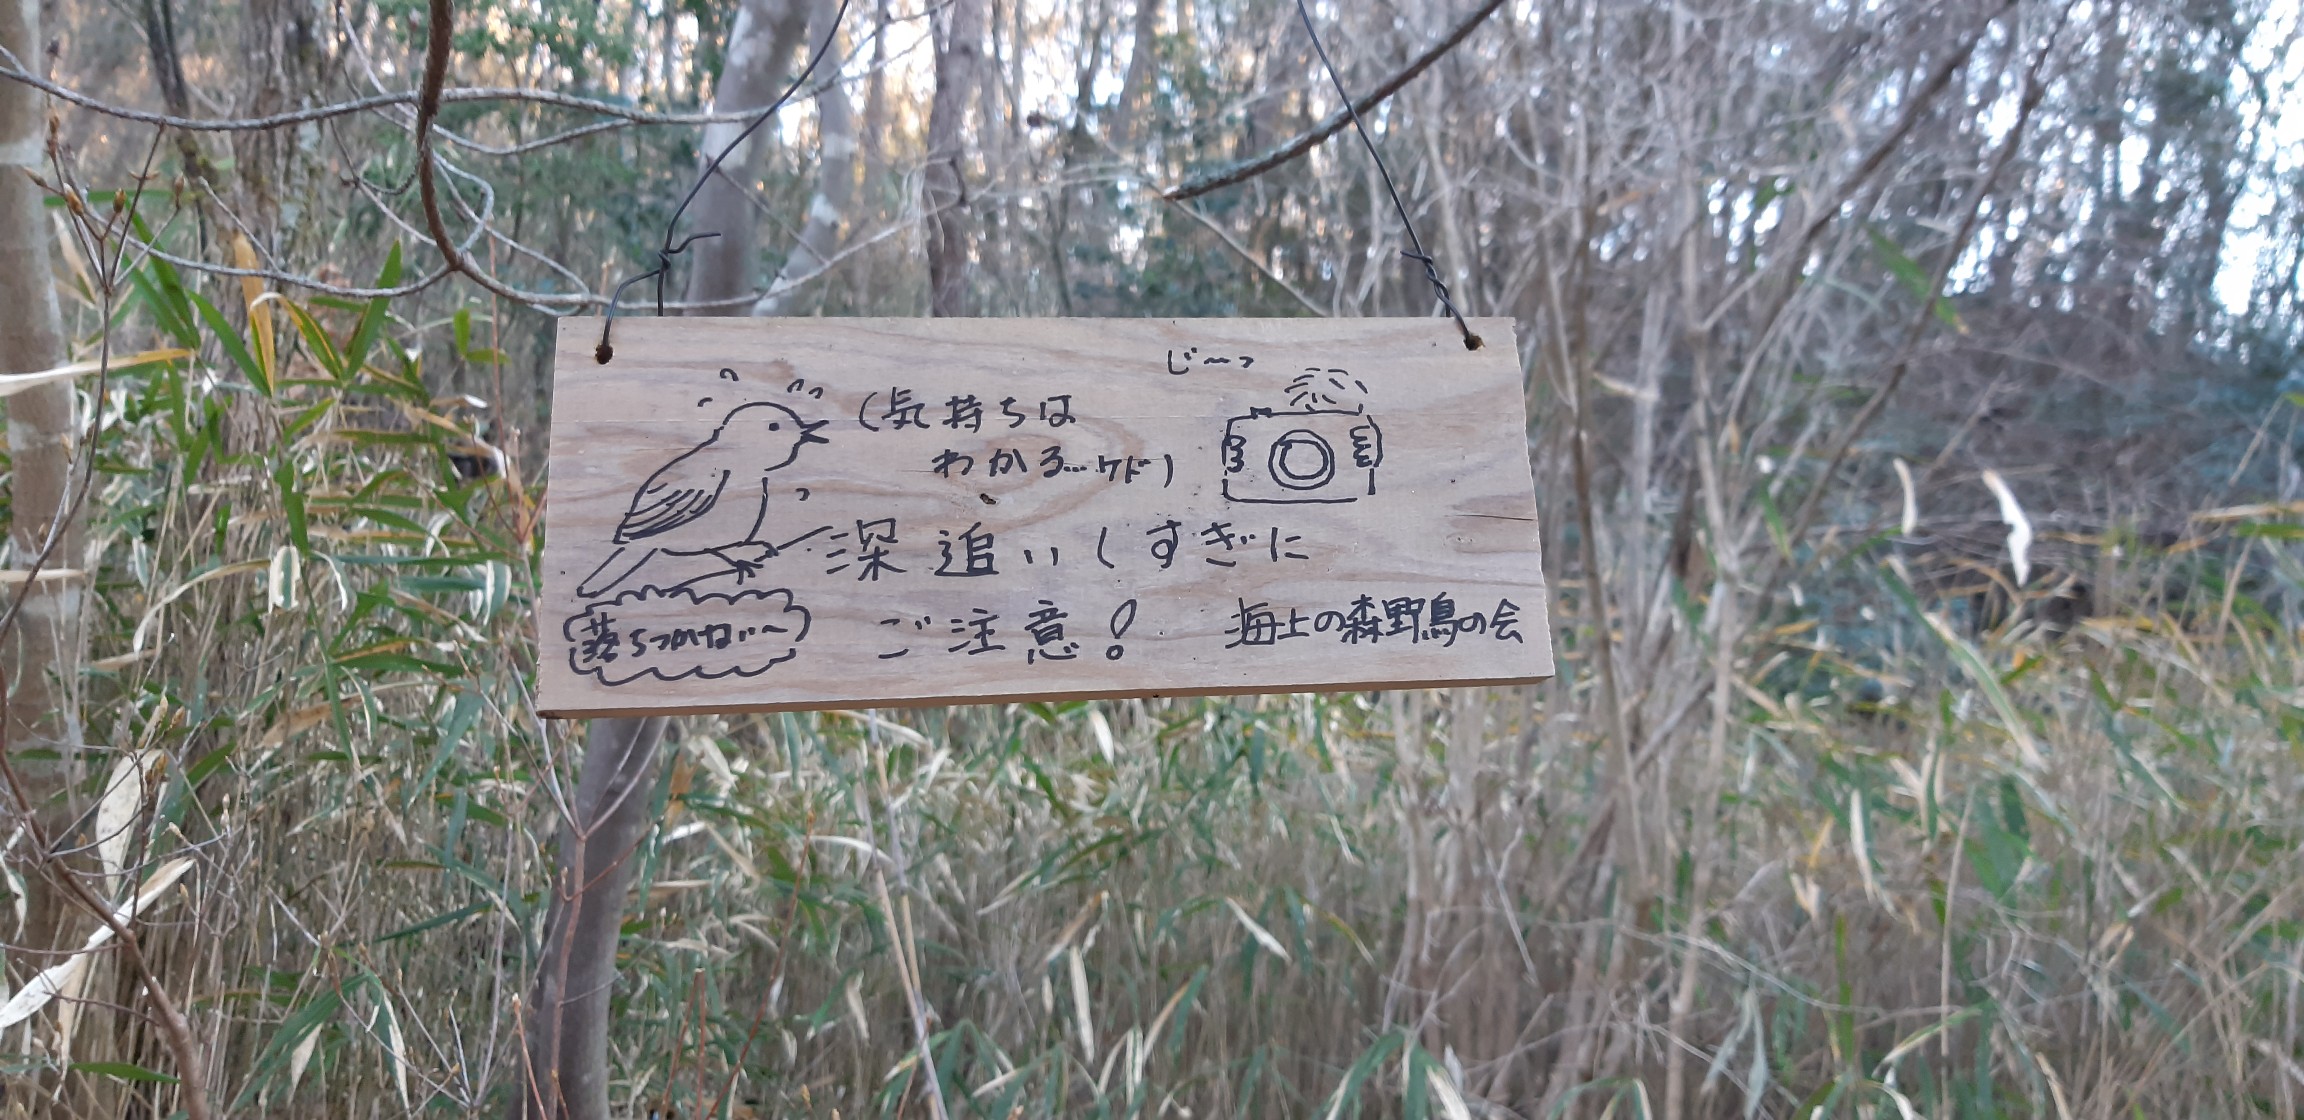 じ〜っ
(気持ちは
わかる...ケド)
深追いしすぎに
ご注意!
落ちつかない〜
海上の森野鳥の会